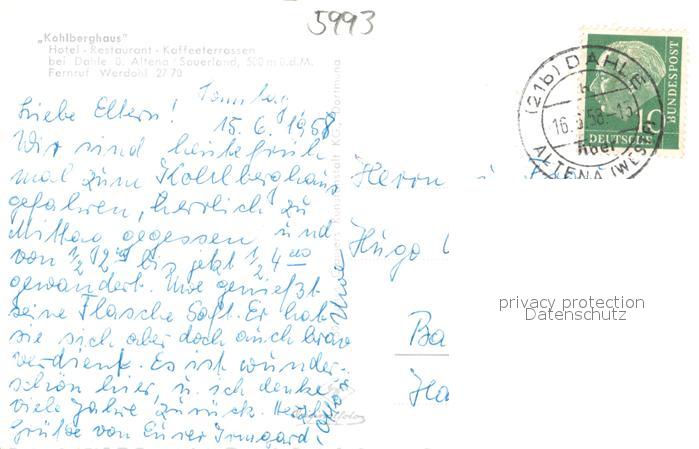 5993
„Kohlberghaus"
Hotel - Restaurant - Kaffeeterrassen
bei Dahle ü. Altena / Sauerland, 500 m ü.d.M.
Fernruf Werdohl 27 70
Sonntag
Liebe Eltern! 15.6.1958
Wir sind heute früh
mal zum Kohlberghaus
gefahren, herrlich zu
Mittag gegessen und
von ½ 12 bis jetzt ½ 4
gewandert. Uwe genießt
seine Flasche Saft. Er hat
sie sich aber doch auch brav
verdient. Es ist wunder-
schön hier, u. ich denke
viele Jahre zurück. Herzl.
Grüße von Eurer Irmgard,
Uwe
Herrn
Hugo
Ba
Ha
(21b) DAHLE
ALTENA (WESTF)
10
DEUTSCHE
BUNDESPOST
privacy protection
Datenschutz